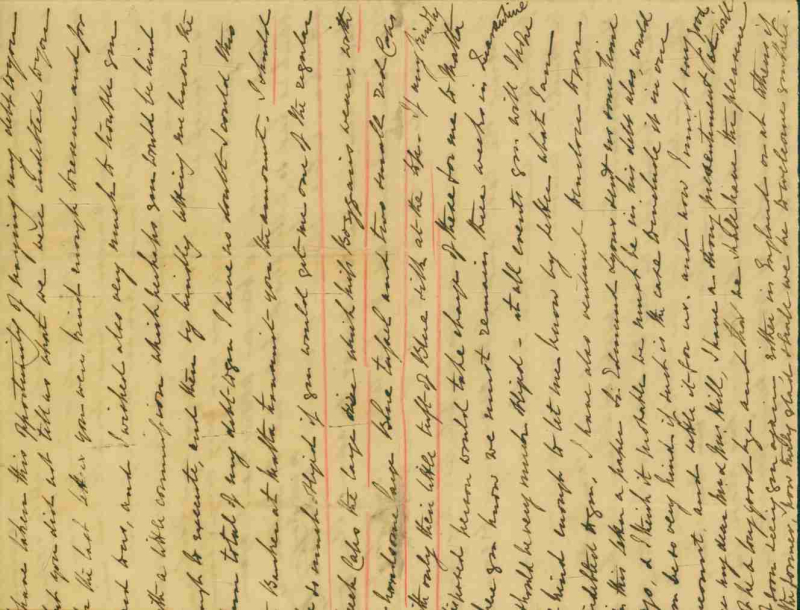 have taken this opportunity of repaying my debt to you
but you did not tell us what we were indebted to you
the last letter you were kind enough to receive and for
and I wished also very much to trouble you
with a little commission which perhaps you would be kind
to execute, and then by kindly letting me know the
sum total of my debt to you I have no doubt I could thro
Banker at Malta transmit you the amount. I should
so much obliged if you would get me one of the regular
Greek Caps the large size which Miss Bozzaris wears, with
handsome large Blue tassel and two small red Caps
with only their little tuft of Blue silk at the top. If any kindly
disposed person would take charge of these for me to Malta
where you know we must remain three weeks in Quarantine
should be very much obliged - at all events you will I hope
kind enough to let me know by letter what I am
indebted to you, I have also ventured to enclose to you
in this letter a paper Sir Edmund Lyons sent us some time
ago, & I think it probable we must be in his debt also would
you be so very kind if such is the case to include it in our
account and settle it for us. and now I must my good
my dear Mr & Mrs Hill, I have a strong presentiment will
be a long good bye and that we shall have the pleasure
soon seeing you again either in England or at Athens if
the former, how truly glad should we be to welcome you